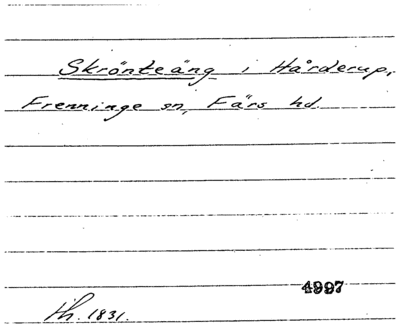 Skrönteäng i Hårderup,
Frenninge sn, Färs hd.
4997
th. 1831.